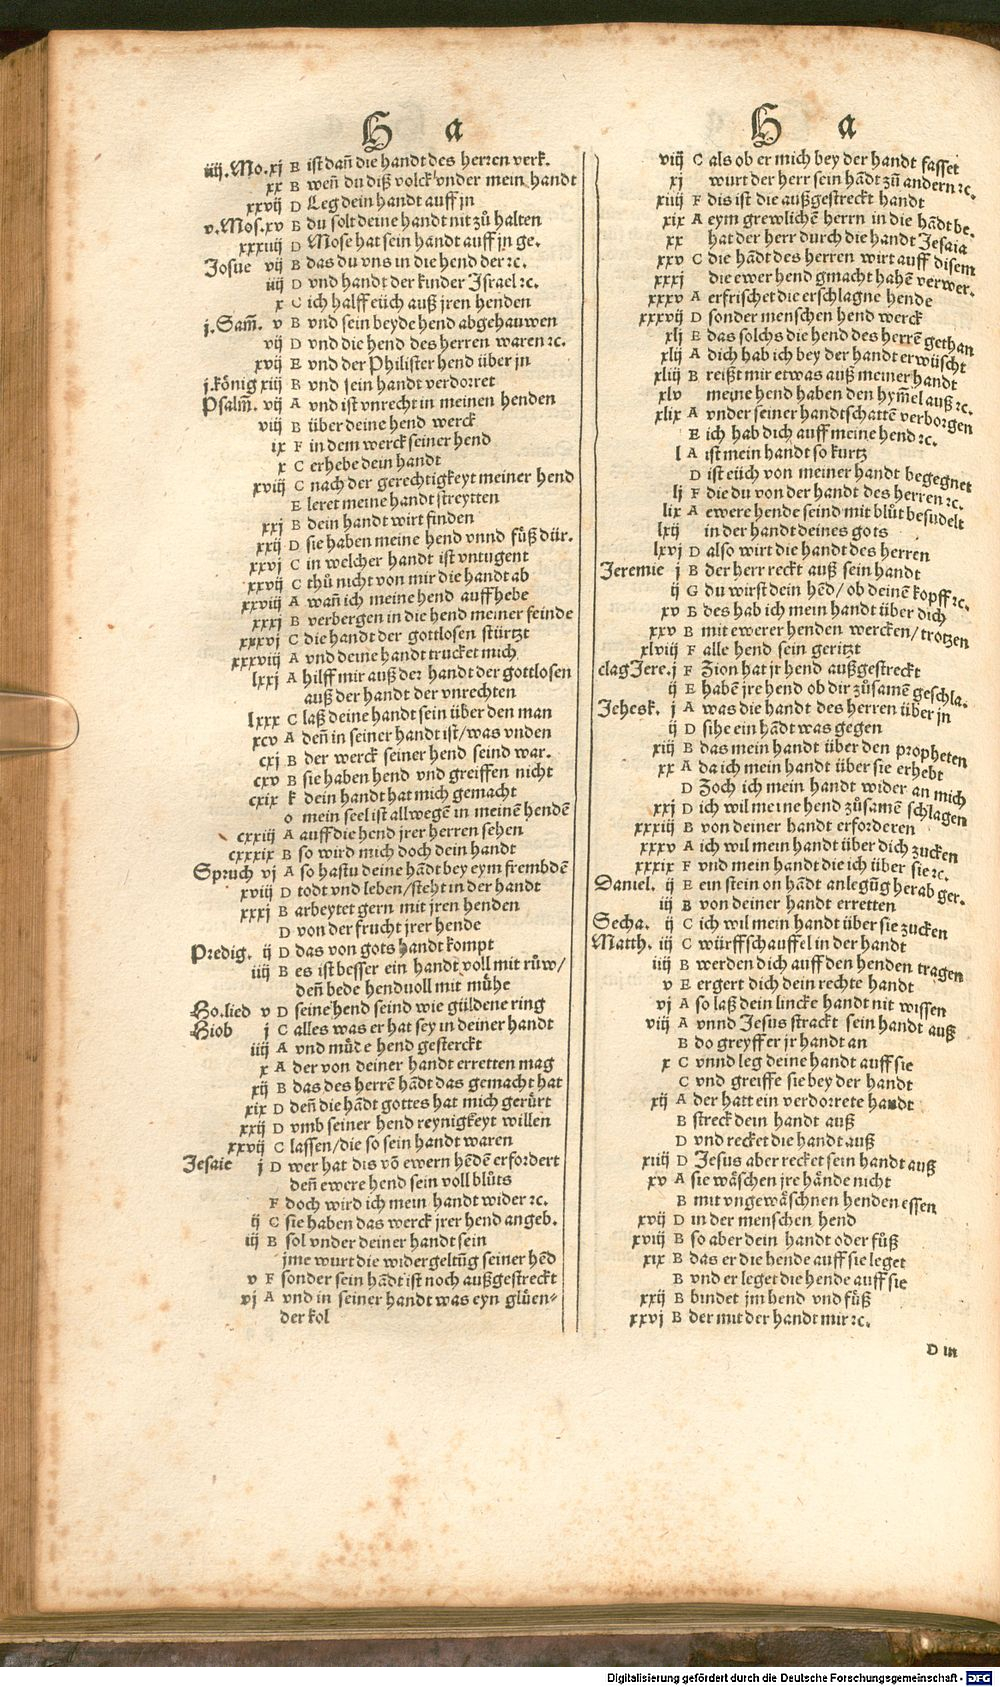 H a
iiij.Mo.xj B ist dañ die handt des herren verk.
xx B weñ du diß volck vnder mein handt
xxvij D Leg dein handt auff jn
v.Mos.xv B du solt deine handt nit zů halten
xxxiiij D Mose hat sein handt auff jn ge.
Josue vij B das du vns in die hend der ꝛc.
iiij D vnd handt der kinder Israel ꝛc.
x C ich halff eüch auß jren henden
j.Sam̃. v B vnd sein beyde hend abgehauwen
vij D vnd die hend des herren waren ꝛc.
xvij E vnd der Philister hend über jn
j.künig xiij B vnd sein handt verdorret
Psalm̃. vij A vnd ist vnrecht in meinen henden
viij B über deine hend werck
ix F in dem werck seiner hend
x C erhebe dein handt
xviij C nach der gerechtigkeyt meiner hend
E leret meine handt streytten
xxj B dein handt wirt finden
xxij D sie haben meine hend vnnd fůß dür.
xxvj C in welcher handt ist vntugent
xxvij C thů nicht von mir die handt ab
xxviij A wañ ich meine hend auffhebe
xxxj B verbergen in die hend meiner feinde
xxxvj C die handt der gottlosen stürtzt
xxxviij A vnd deine handt trucket mich
lxxj A hilff mir auß der handt der gottlosen
auß der handt der vnrechten
lxxx C laß deine handt sein über den man
xcv A deñ in seiner handt ist/was vnden
cxj B der werck seiner hend seind war.
cxv B sie haben hend vnd greiffen nicht
cxix k dein handt hat mich gemacht
o mein seel ist allwegē in meinē hendē
cxxiij A auff die hend jrer herren sehen
cxxxix B so wird mich doch dein handt
Spruch vj A so hastu deine hādt bey eym frembdē
xviij D todt vnd leben/steht in der handt
xxxj B arbeytet gern mit jren henden
D von der frucht jrer hende
Predig. ij D das von gots handt kompt
iiij B es ist besser ein handt voll mit růw/
deñ bede hend voll mit můhe
Ho.lied v D seine hend seind wie güldene ring
Hiob j C alles was er hat sey in deiner handt
iiij A vnd můde hend gesterckt
x A der von deiner handt erretten mag
xij B das des herrē hādt das gemacht hat
xix D deñ die hādt gottes hat mich gerůrt
xxij D vmb seiner hend reynigkeyt willen
xxvij C lassen/die so sein handt waren
Jesaie j D wer hat dis vō ewern hēdē erfordert
deñ ewere hend sein voll blůts
F doch wird ich mein handt wider ꝛc.
ij C sie haben das werck jrer hend angeb.
iij B sol vnder deiner handt sein
jme wurt die widergeltūg seiner hēd
v F sonder sein hādt ist noch außgestreckt
vj A vnd in seiner handt was eyn glůen⸗
der kol
H a
viij C als ob er mich bey der handt fasset
xj wurt der herr sein hādt zū andern ꝛc.
xiiij F dis ist die außgestreckt handt
xix A eym grewlichē herrn in die hādt be.
xx hat der herr durch die handt Jesaia
xxv C die hādt des herren wirt auff disem
xxxj die ewer hend gmacht habē verwer.
xxxv A erfrischet die erschlagne hende
xxxvij D sonder menschen hend werck
xlj E das solchs die hend des herrē gethan
xlij A dich hab ich bey der handt erwüscht
xliij B reißt mir etwas auß meiner handt
xlv meine hend haben den hym̃el auß ꝛc.
xlix A vnder seiner handtschattē verborgen
E ich hab dich auff meine hend ꝛc.
l A ist mein handt so kurtz
D ist eüch von meiner handt begegnet
lj F die du von der handt des herren ꝛc.
lix A ewere hende seind mit blůt besudelt
lxij in der handt deines gots
lxvj D also wirt die handt des herren
Jeremie j B der herr reckt auß sein handt
ij G du wirst dein hēd/ob deinē kopff ꝛc.
xv B des hab ich mein handt über dich
xxv B mit ewerer henden wercken/trotzen
xlviij F alle hend sein geritzt
clagJere.j F Zion hat jr hend außgestreckt
ij E habē jre hend ob dir zůsamē geschla.
Jehesk. j A was die handt des herren über jn
ij D sihe ein hādt was gegen
xiij B das mein handt über den propheten
xx A da ich mein handt über sie erhebt
D Zoch ich mein handt wider an mich
xxj D ich wil meine hend zůsamē schlagen
xxxiij B von deiner handt erforderen
xxxv A ich wil mein handt über dich zucken
xxxix F vnd mein handt die ich über sie ꝛc.
Daniel. ij E ein stein on hādt anlegūg herab ger.
iij B von deiner handt erretten
Secha. ij C ich wil mein handt über sie zucken
Matth. iij C würffschauffel in der handt
iiij B werden dich auff den henden tragen
v E ergert dich dein rechte handt
vj A so laß dein lincke handt nit wissen
viij A vnnd Jesus strackt sein handt auß
B do greyff er jr handt an
x C vnnd leg deine handt auff sie
C vnd greiffe sie bey der handt
xij A der hatt ein verdorrete handt
B streck dein handt auß
D vnd recket die handt auß
xiiij D Jesus aber recket sein handt auß
xv A sie wäschen jre hände nicht
B mit vngewäschnen henden essen
xvij D in der menschen hend
xviij B so aber dein handt oder fůß
xix B das er die hende auff sie leget
B vnd er leget die hende auff sie
xxij B bindet jm hend vnd fůß
xxvj B der mit der handt mir ꝛc.
D iij
Digitalisierung gefördert durch die Deutsche Forschungsgemeinschaft - DFG